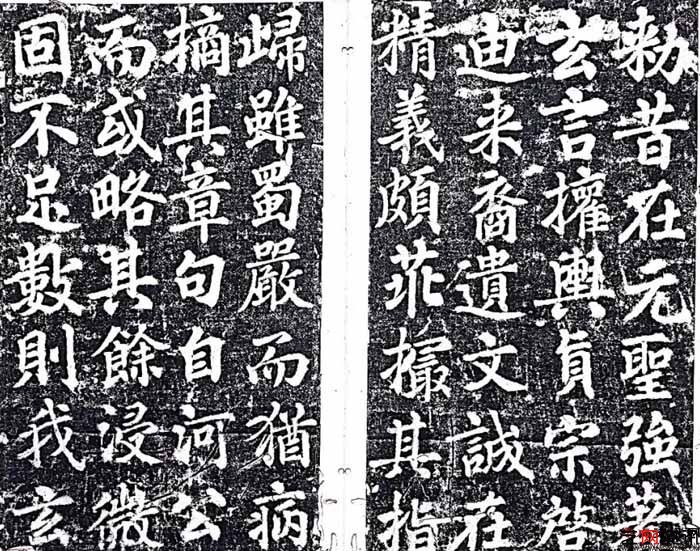 敕昔在元聖強著
玄言權輿真宗啓
迪来裔遺文誠在
精義頗乖撮其指
歸雖蜀嚴而猶病
摘其章句自河公
而或略其餘浸微
固不足數則我玄